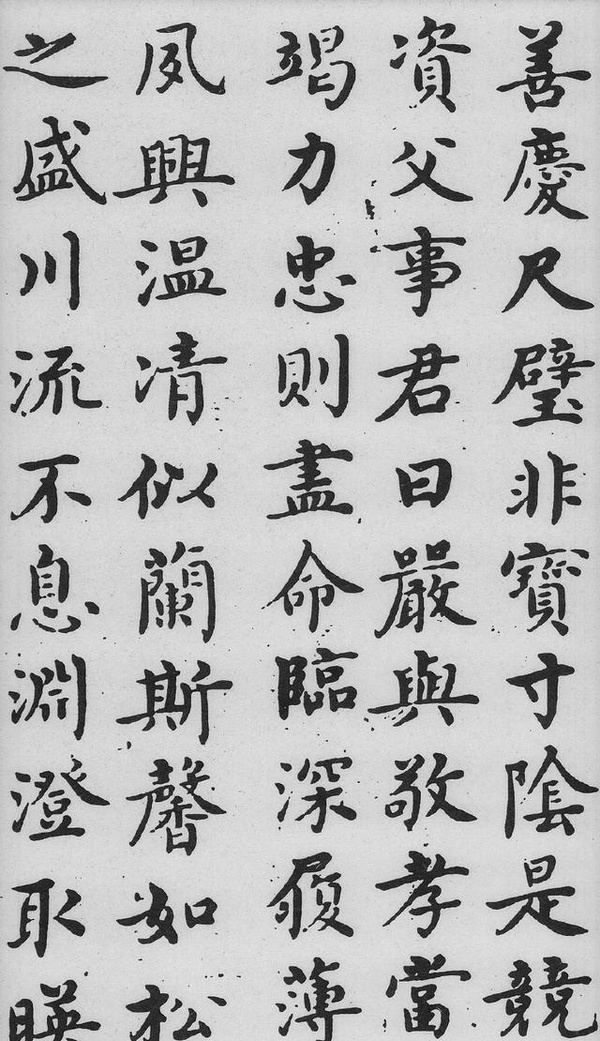 善慶尺璧非寶寸陰是競
資父事君曰嚴與敬孝當
竭力忠則盡命臨深履薄
夙興温凊似蘭斯馨如松
之盛川流不息淵澄取暎